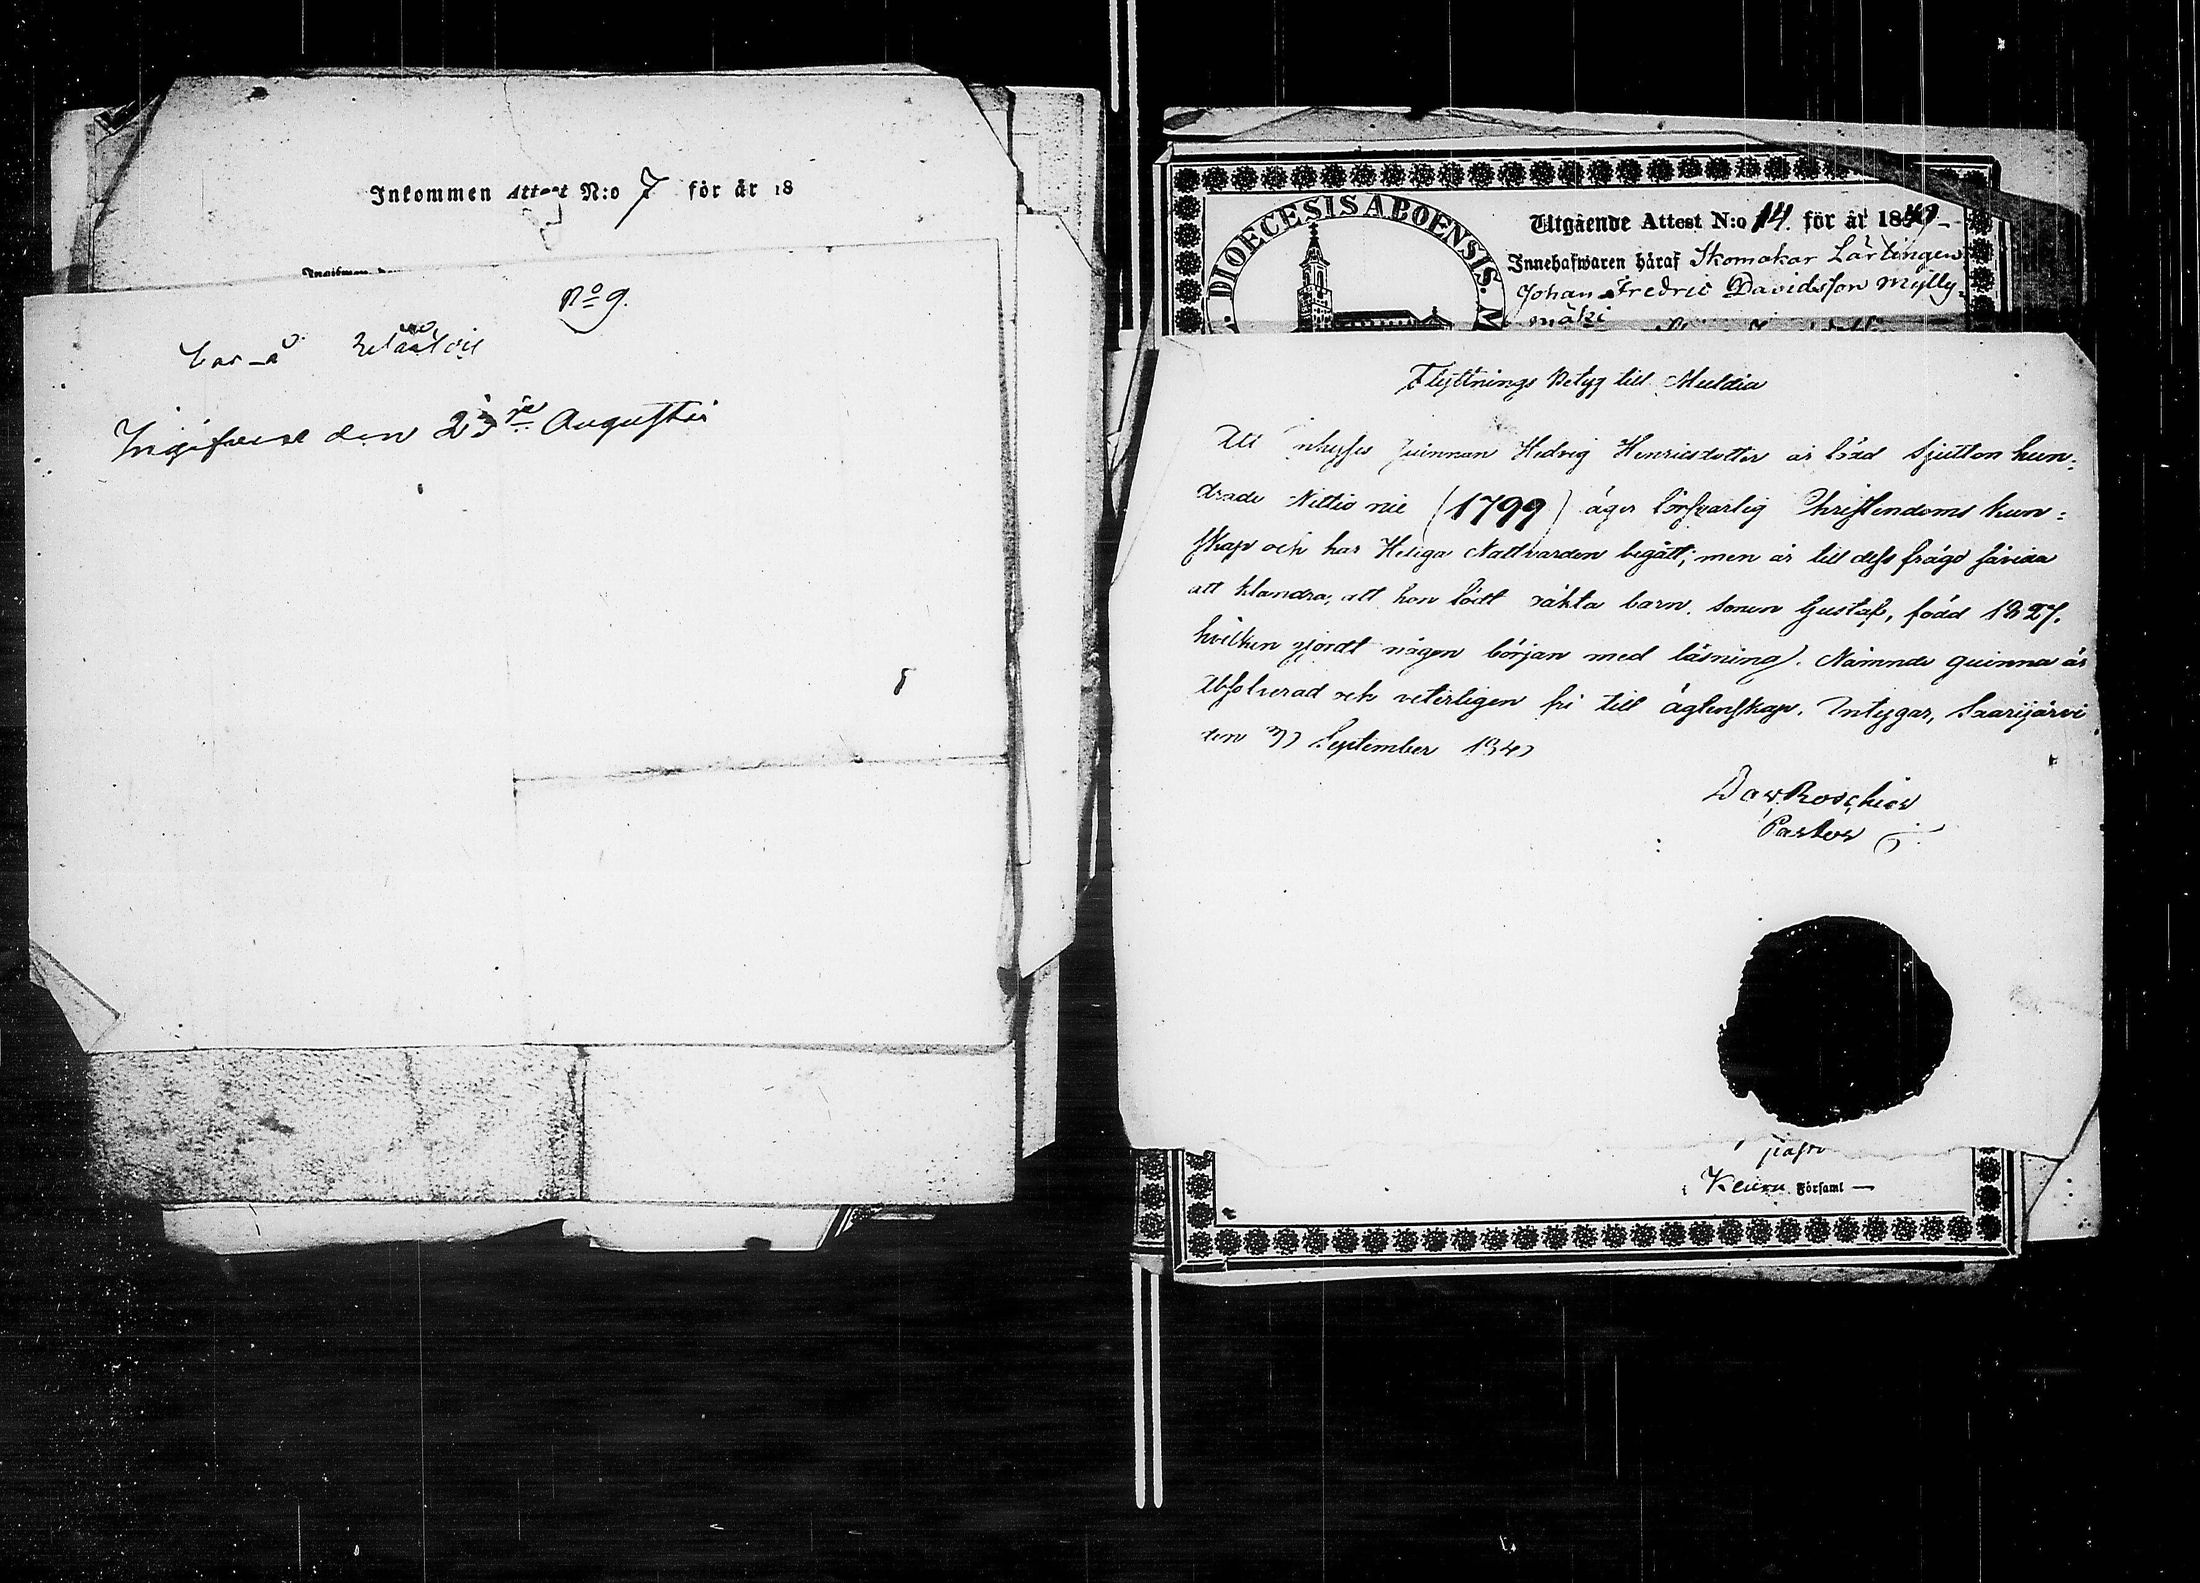 Inkommen Attest N:o 7 för år 18
No 9.
Ingifven den 23de Augusti
DIOECESIS ABOENSIS.
Utgående Attest N:o 14. för år 1840
Innehafwaren häraf Skomakar Lärlingen
Johan Fredric Davidsson Mylly-
mäki
Flyttnings Betyg till Multia
Att inhyses Quinnan Hedvig Henricsdotter är född sjutton hun-
drade Nittio nie (1799) äger försvarlig Christendoms kun-
skap och har Heliga Nattvarden begått; men är till dess frägd såvida
att klandra, att hon födt oäkta barn. sonen Gustaf, född 1827.
hvilken gjordt någon början med läsning). Nämnde quinna är
Absolverad och veterligen fri till ägtenskap. Intygar, Saarijärvi
den September 1840
Dav. Roschier
Pastor
Keuru Församl